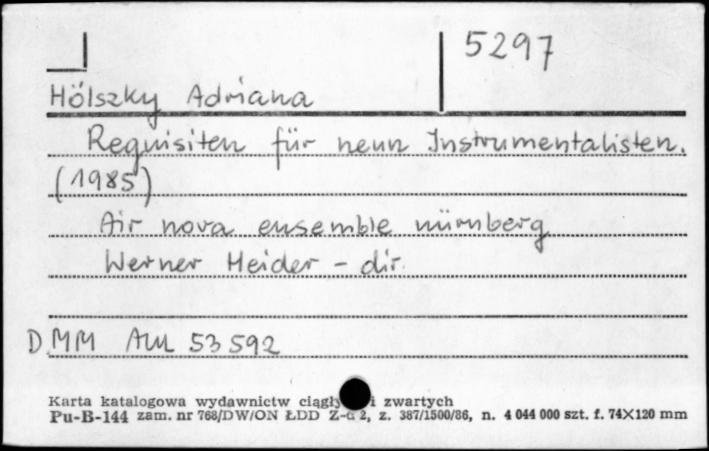 5297
Hölszky Adriana
Requisiten für neun Instrumentalisten.
(1985)
Air nova ensemble nürnberg
Werner Heider - dir.
DMM AUL 53 592
Karta katalogowa wydawnictw i zwartych
Pu-B-144 zam. nr 768/DW/ON ŁDD 2, z. 387/1500/86, n. 4 044 000 szt. f. 74X120 mm